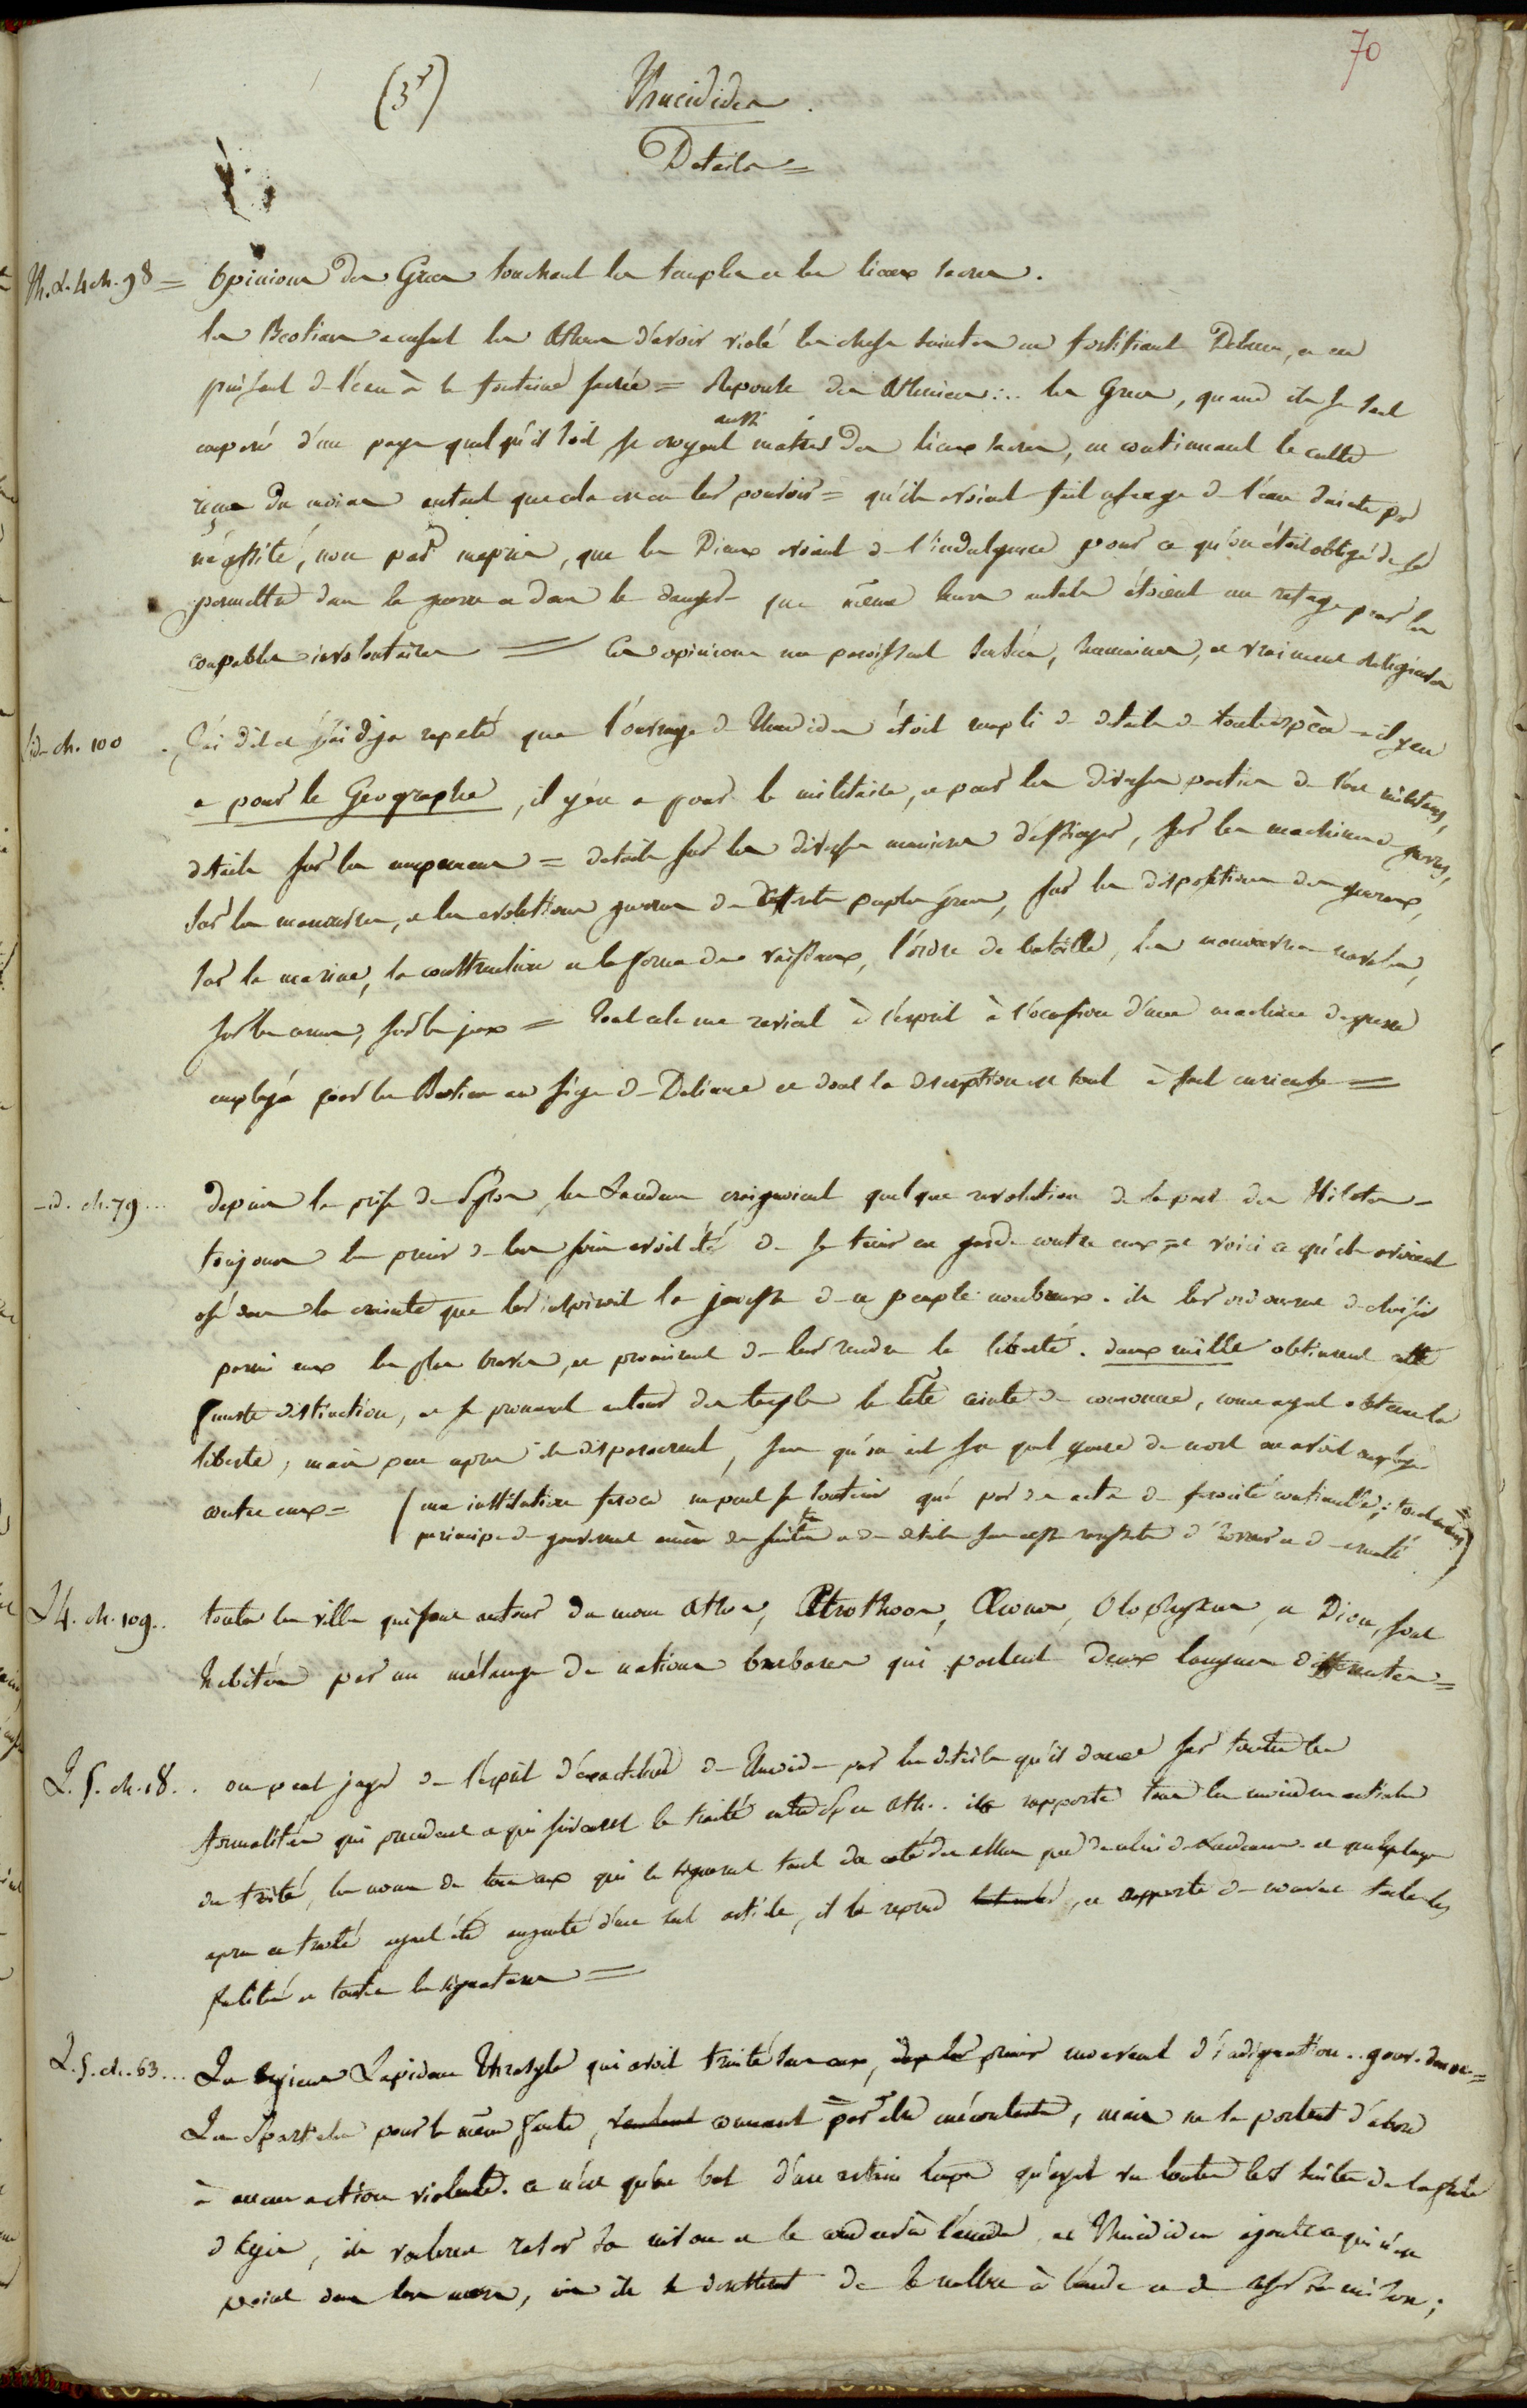 70
(3e)
Thucidides.
Details =
Th. L. 4 ch. 98 = Opinions des Grecs touchant les temples et les lieux sacrés.
les Beotiens accusent les Athen. d'avoir violé les choses saintes en fortifiant Delium, et en
puisant de l'eau à la fontaine sacrée = Reponse des Atheniens ... les Grecs, quand ils se sont
emparé d'un pays quel qu'il soit se croyent aussi maitres des lieux sacrés, en continuant le culte
reçu du moins autant que cela est en leur pouvoir = qu'ils avoient fait usage de l'eau sainte par
nécessité, non par mepris, que les Dieux avoient de l'indulgence pour ce qu'on étoit obligé de se
permettre dans la guerre et dans le danger - que même leurs autels étoient un refuge pour les
coupables involontaires = Ces opinions me paroissent sensées, humaines, et vraiment religieuses
id. ch. 100 . J'ai dit et j'ai deja repeté que l'ouvrage de Thucidides étoit rempli de details de toute espèce - il y en
a pour le Geographe, il y en a pour le militaire, et pour les diverses parties de l'art militaire,
details sur les campemens = details sur les diverses manieres d'assieger, sur les machines de guerre,
sur les manœuvres, et les evolutions guerrieres des differents peuples grecs, sur les dispositions des generaux,
sur la marine, la construction et la forme des vaisseaux, l'ordre de bataille, les manœuvres navales,
sur les armes, sur les jeux = tout cela me revient à l'esprit à l'occasion d'une machine de guerre
employée par les Beotiens au siege de Delium et dont la description est tout à fait curieuse =
- id. ch. 79 ... depuis la prise de Pylos, les Lacedem. craignoient quelque revolution de la part des Hilotes -
toujours le premier de leurs soins avoit été de se tenir en garde contre eux - et voici ce qu'ils avoient
osé dans la crainte que leur inspiroit la jeunesse de ce peuple nombreux. ils leur ordonnerent de choisir
parmi eux les plus braves, et promirent de leur rendre la liberté. deux mille obtinrent cette
funeste distinction, et se promenerent autour des temples la tête ceinte de couronnes, comme ayant obtenu la
liberté, mais peu apres ils disparurent, sans qu'on ait su quel genre de mort on avoit employé
contre eux = (une institution feroce ne peut se soutenir que par des actes de ferocité continuelle; tout mauvais
principe de gouvernement amène des suites et des details sans cesse ressortants d'horreur et de cruauté)
L 4. ch. 109.. toutes les villes qui sont autour du mont Athos, Thyssus, Cleones, Olophyxus, et Dion, sont
habitées par un mélange de nations barbares qui parlent deux langues differentes =
L. 5. ch. 18. . on peut juger de l'esprit d'exactitude de Thucidide par les details qu'il donne sur toutes les
formalités qui precedent et qui suivirent le traité entre Sp. et Ath.. il rapporte tous les moindres articles
du traité, les noms de tous ceux qui le signerent tant du coté des Athen. que de celui des Lacedem. et quelques pages
apres ce traité ayant été augmenté d'un seul article, il le reprend, et rapporte de nouveau toutes les
formalités et toutes les signatures =
L. 5. ch. 63 ... Les Argiens Lapident Thrasyle qui avoit traité sans eux, mouvement d'indignation .. gouv. democ. =
Les Spartiates pour la même faute, commencent par être mécontents, mais ne se portent d'abord
à aucune action violente. ce n'est qu'au bout d'un certain temps qu'ayant vu toutes les suites de la faute
d'Agis, ils voulurent raser sa maison et le condamner à l'amende, et Thucidides ajoute ce qui n'est
point dans leurs mœurs, ils se desisterent de le mettre à l'amende et de raser sa maison;